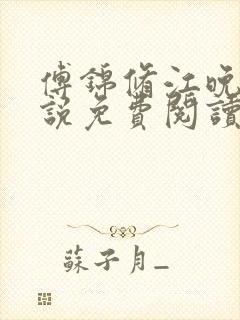 傅錦脩江晚
說免費閱讀
蘇子月_